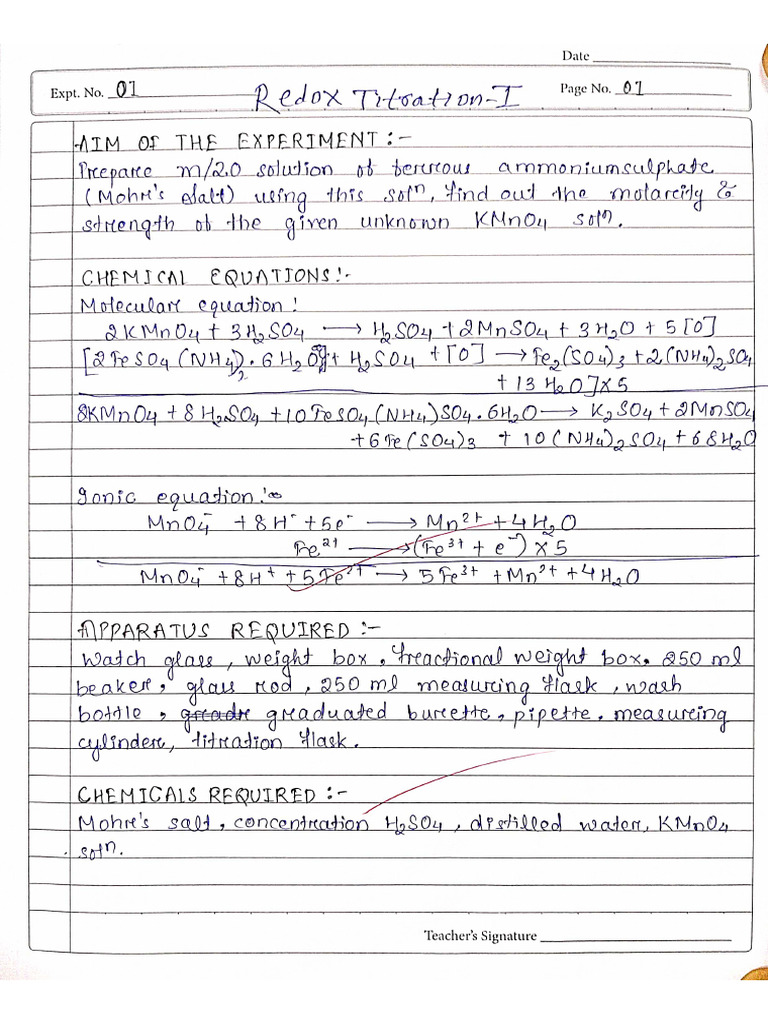 Date
Expt. No. 01 Redox Titration-I Page No. 01
AIM OF THE EXPERIMENT :-
Prepare m/20 solution of ferrous ammoniumsulphate
(Mohr's Salt) using this solⁿ, find out the molarity &
strength of the given unknown KMnO4 solⁿ.
CHEMICAL EQUATIONS:-
Molecular equation :
2KMnO4 + 3H₂SO4 ⟶ H₂SO4 + 2MnSO4 + 3H₂O + 5[O]
[2FeSO4(NH4)₂.6H₂O] + H₂SO4 + [O] ⟶ Fe₂(SO4)₃ + 2(NH4)₂SO4
+ 13H₂O] x 5
8KMnO4 + 8H₂SO4 + 10FeSO4(NH4)SO4.6H₂O ⟶ K₂SO4 + 2MnSO4
+ 6Fe(SO4)₃ + 10(NH4)₂SO4 + 68H₂O
Ionic equation :-
MnO4⁻ + 8H⁻ + 5e⁻ ⟶ Mn²⁺ + 4H₂O
Fe²⁺ ⟶ (Fe³⁺ + e⁻) x 5
MnO4⁻ + 8H⁺ + 5Fe²⁺ ⟶ 5Fe³⁺ + Mn²⁺ + 4H₂O
APPARATUS REQUIRED :-
Watch glass, weight box, fractional weight box, 250 ml
beaker, glass rod, 250 ml measuring flask, wash
bottle, graduated burette, pipette, measuring
cylinder, titration flask.
CHEMICALS REQUIRED :-
Mohr's salt, concentration H₂SO4, distilled water, KMnO4
solⁿ.
Teacher's Signature